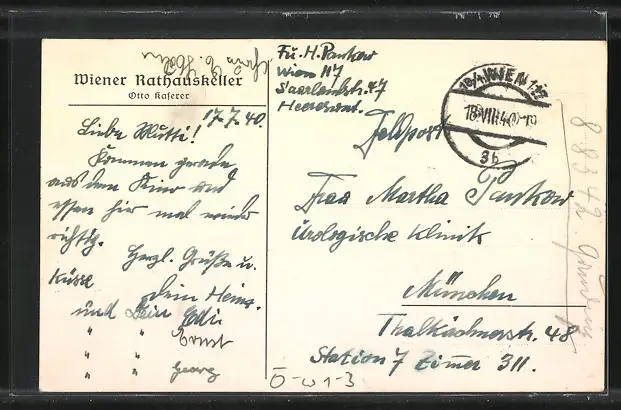 Wiener Rathauskeller
Otto Kaserer
17.7.40.
Liebe Mutti!
Kommen gerade
aus dem Kino und
essen hier mal wieder
richtig.
Herzl. Grüße u.
Küsse
Dein Heinz.
und Dein Edi
" " Ernst
" "
" " Georg
Fu. H. Pankow
Wien 117
Saarlandstr. 47
Feldpost
WIEN 117
18.VIII.40
3b
Frau Martha Pankow
Urologische Klinik
München
Thalkirchnerstr. 48
Station 7 Zimmer 311.
Ö-W 1-3
88342